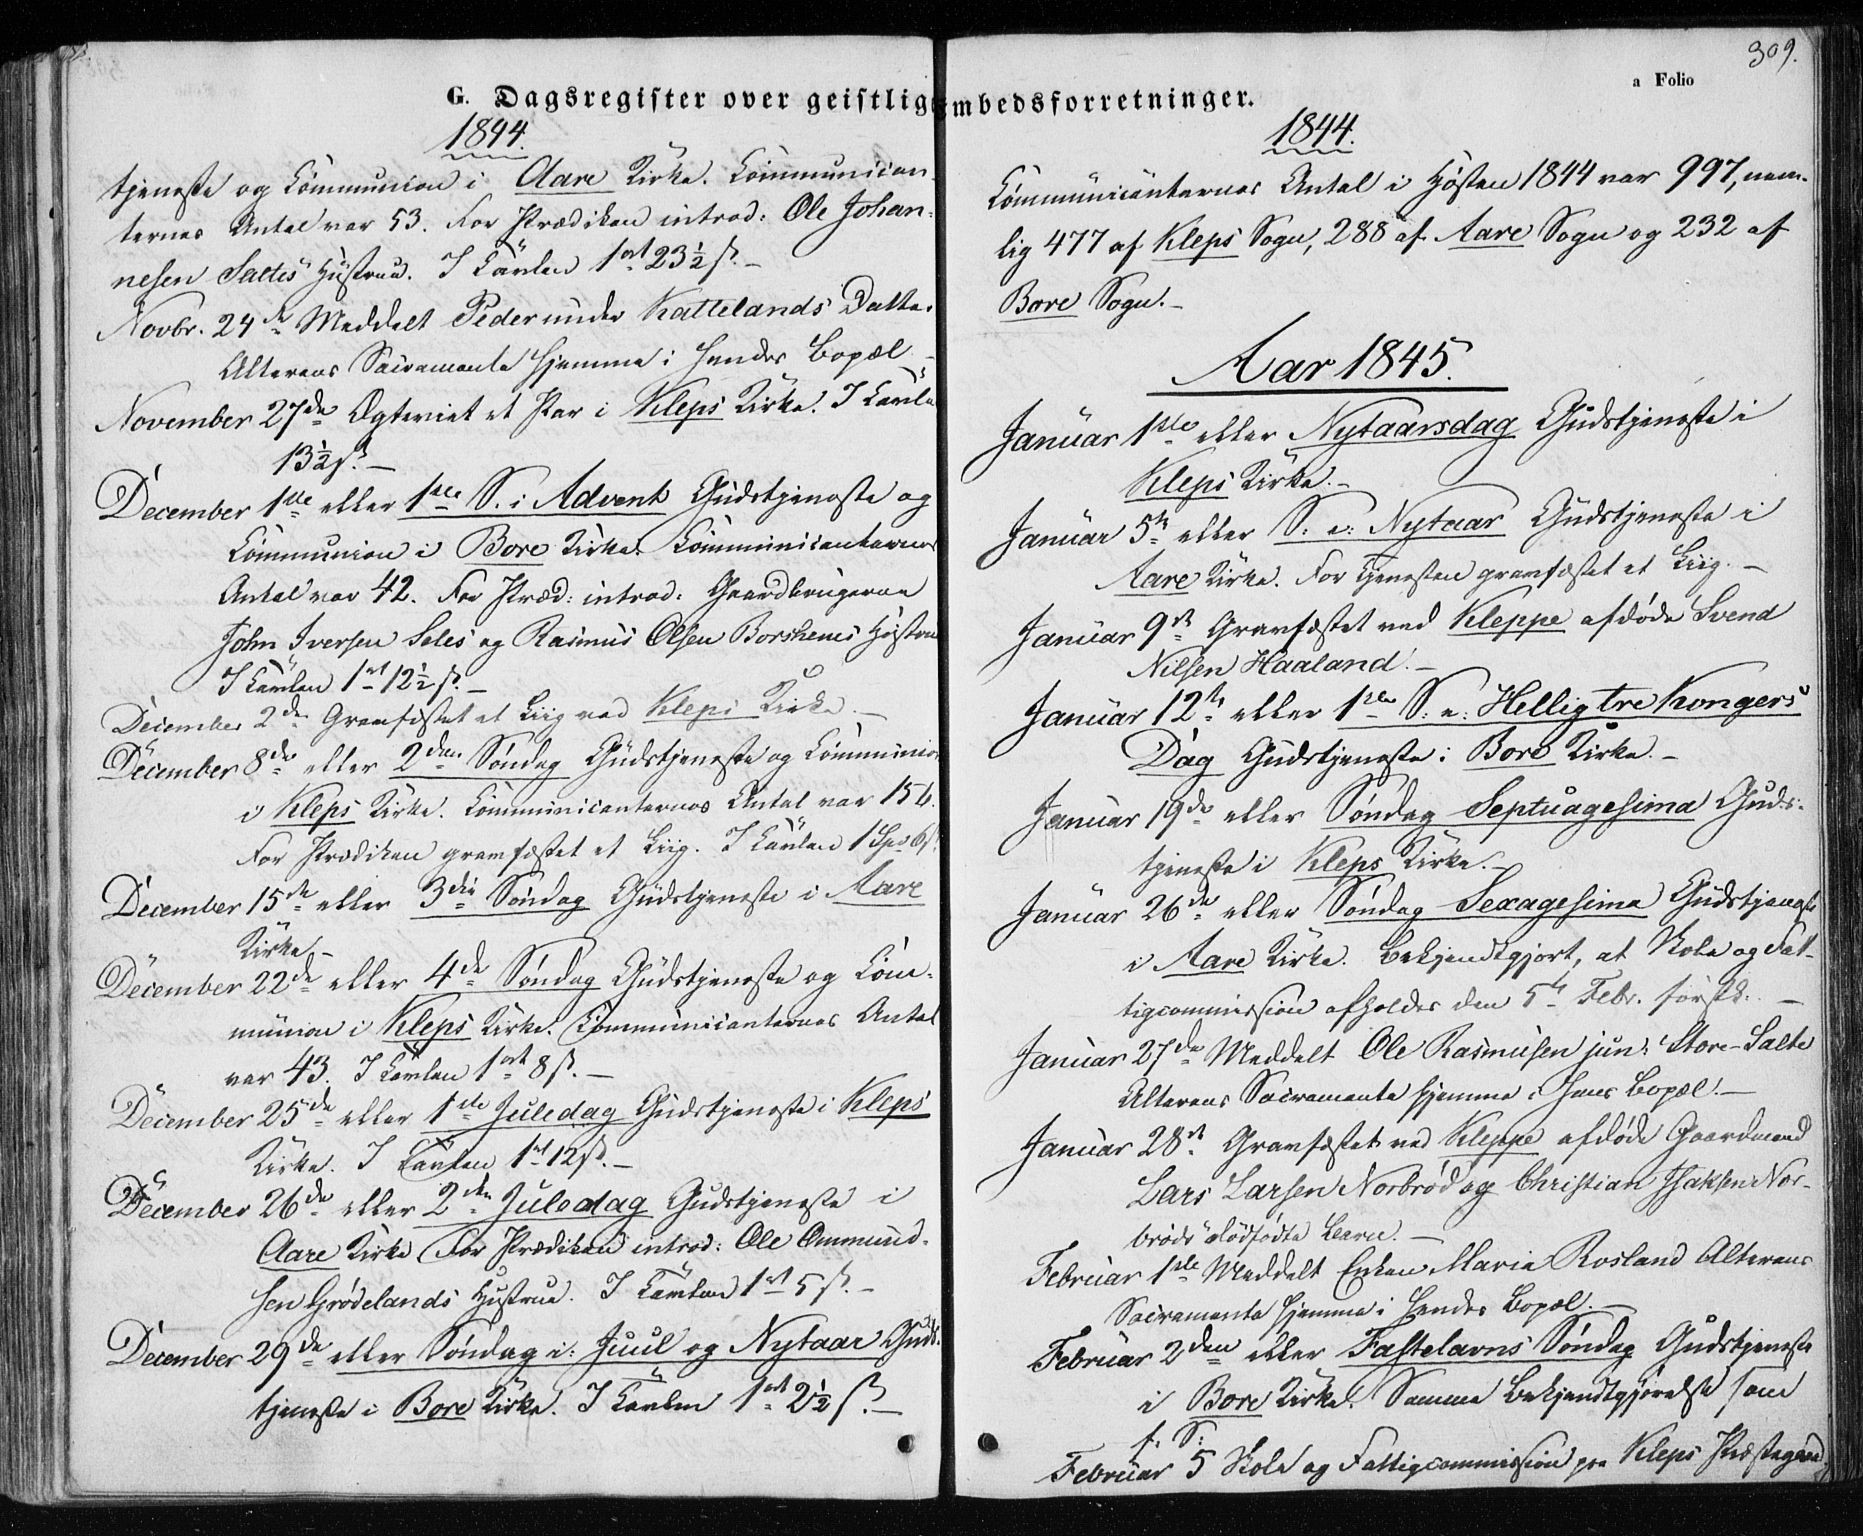 G. Dagsregister over geistlig
1844.
tjeneste og Communion i Aare Kirke. Communican-
ternes Antal var 53. For Prædiken introd: Ole Johan-
nesen Saltes Hustrue. I Tavlen 1 ort 23½ ß. –
Novbr. 24de Meddelt Peder under Kattelands Datter
Alterens Sacramente hjemme i hendes Bopæl –
November 27de Ægteviet et Par i Kleps Kirke. I Tavlen
13½ ß. –
December 1ste eller 1ste S. i Advent Gudstjeneste og
Communion i Bore Kirke. Communicanternes
Antal var 42. For Præd: introd: Gaardbrugerne
John Iversen Seles og Rasmus Olsen Borshems Hustruer
I Tavlen 1 ort 12½ ß. –
December 2den Gravfæstet et Liig ved Kleps Kirke. –
December 8de eller 2den Søndag Gudstjeneste og Communion
i Kleps Kirke. Communicanternes Antal var 156.
For Prædiken gravfæstet et Liig. I Tavlen 1 Spd 6 ß.
December 15de eller 3die Søndag Gudstjeneste i Aare
Kirke –
December 22de eller 4de Søndag Gudstjeneste og Com-
munion i Kleps Kirke. Communicanternes Antal
var 43. I Tavlen 1 ort 8 ß. –
December 25de eller 1ste Juledag Gudstjeneste i Kleps
Kirke. I Tavlen 1 ort 12 ß. –
December 26de eller 2den Juledag Gudstjeneste i
Aare Kirke For Prædiken introd: Ole Ommund-
sen Grødelands Hustrue. I Tavlen 1 ort 5 ß. –
December 29de eller Søndag i: Juul og Nytaar Guds-
tjeneste i Bore Kirke. I Tavlen 1 ort 2½ ß. –
309.
a Folio
mbedsforretninger.
1844.
Communicanternes Antal i Høsten 1844 var 997, nem-
lig 477 af Kleps Sogn, 288 af Aare Sogn og 232 af
Bore Sogn. –
Aar 1845.
Januar 1ste eller Nytaarsdag Gudstjeneste i
Kleps Kirke. –
Januar 5te eller S: e: Nytaar Gudstjeneste i
Aare Kirke. For Tjenesten gravfæstet et Liig. –
Januar 9de Gravfæstet ved Kleppe afdøde Svend
Nilsen Haaland. –
Januar 12te eller 1ste S: e: Hellig tre Kongers
Dag Gudstjeneste i Bore Kirke. –
Januar 19de eller Søndag Septuagesima Guds-
tjeneste i Kleps Kirke. –
Januar 26de eller Søndag Sexagesima Gudstjeneste
i Aare Kirke. Bekjendtgjort, at Skole og Fat-
tigcommission afholdes den 5te Febr. førstk. –
Januar 27de Meddelt Ole Rasmusen jun: Store-Salte
Alterens Sacramente hjemme i hans Bopæl. –
Januar 28de Gravfæstet ved Kleppe afdøde Gaardmand
Lars Larsen Norbrød og Christian Isaksen Nor-
brøds dødfødte Barn. –
Februar 1ste Meddelt Enken Maria Rosland Alterens
Sacramente hjemme i hendes Bopæl. –
Februar 2den eller Fastelavns Søndag Gudstjeneste
i Bore Kirke. Samme Bekjendtgjørelse som
f: S:
Februar 5 Skole og Fattigcommission paa Kleps Præstegaard